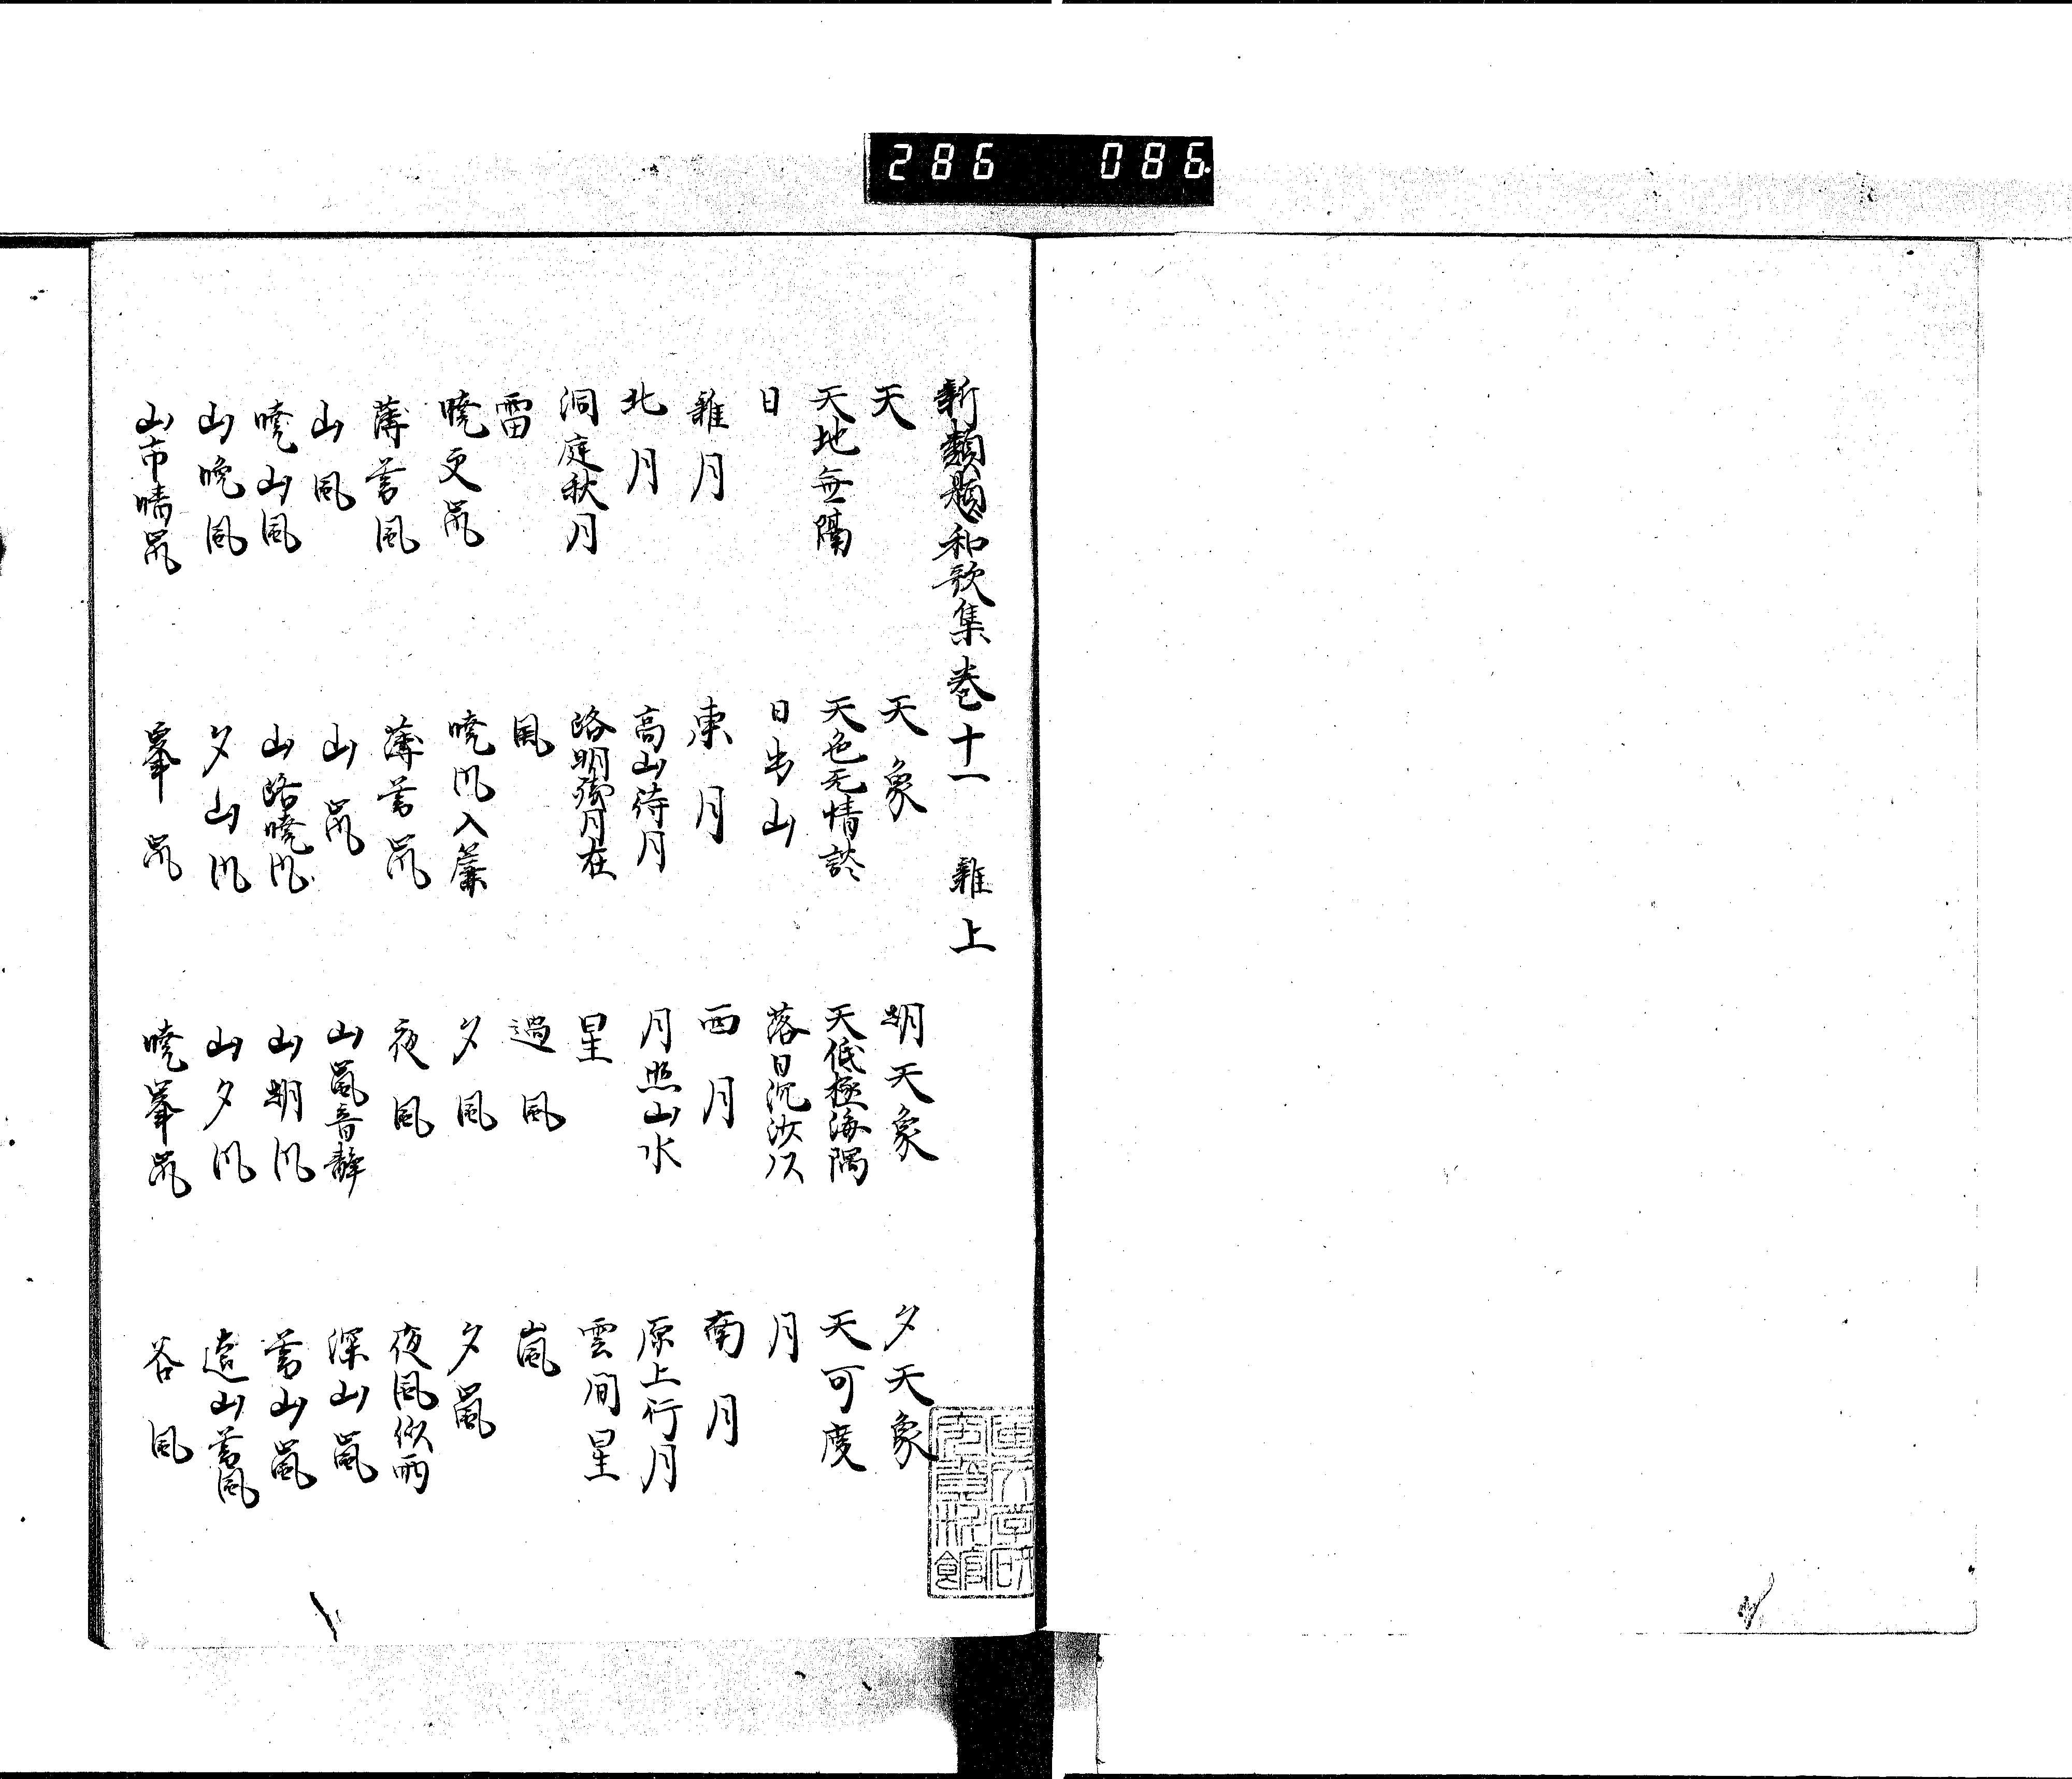 286 086
新類題和歌集巻十一 雑上
天 天象 朝天象 夕天象
天地無隔 天色无情談 天低極海隅 天可度
日 日出山 落日沉 月
雑月 東月 西月 南月
北月 高山待月 月照山水 原上行月
洞庭秋月 路明残月在 星 雲間星
雷 風 過風 嵐
暁更嵐 暁風入簾 夕風 夕嵐
薄暮風 薄暮嵐 夜風 夜風似雨
山風 山嵐 山嵐音静 深山嵐
暁山風 山路暁風 山朝風 暮山嵐
山晩風 夕山風 山夕風 遠山暮風
山市晴嵐 峯嵐 暁峯嵐 谷風